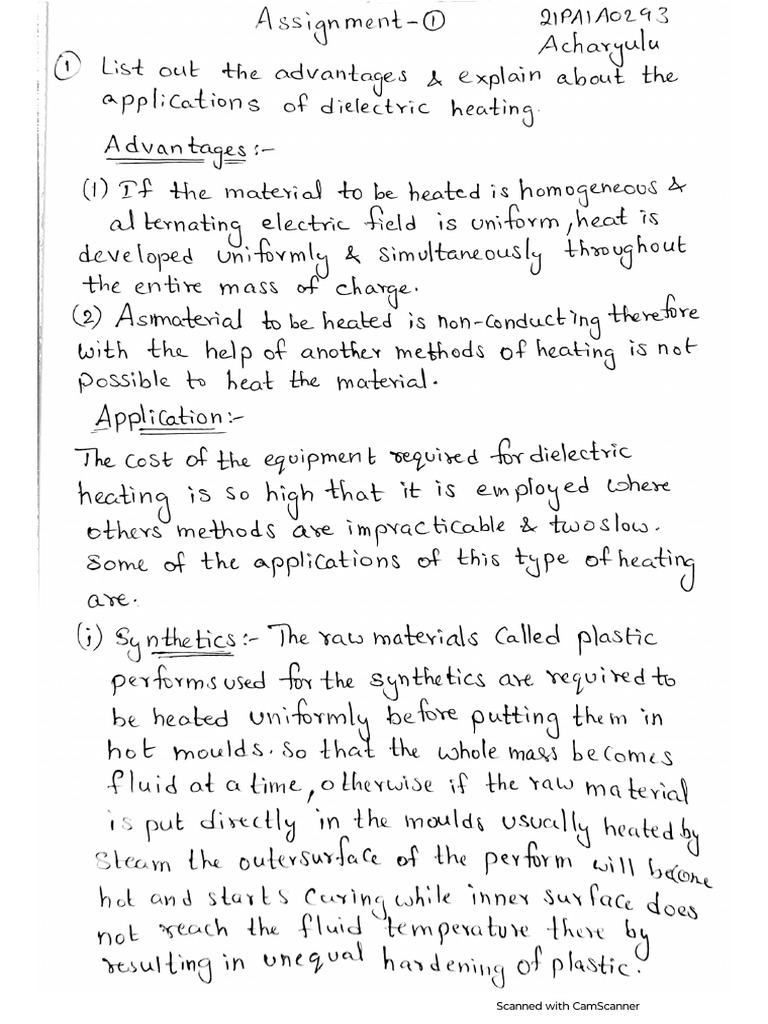 Assignment-①
21PA1A0293
Acharyulu
① List out the advantages & explain about the
applications of dielectric heating.
Advantages:-
(1) If the material to be heated is homogeneous &
alternating electric field is uniform, heat is
developed uniformly & simultaneously throughout
the entire mass of charge.
(2) As material to be heated is non-conducting therefore
with the help of another methods of heating is not
possible to heat the material.
Application:-
The cost of the equipment required for dielectric
heating is so high that it is employed where
others methods are impracticable & two slow.
Some of the applications of this type of heating
are.
(i) Synthetics:- The raw materials called plastic
performs used for the synthetics are required to
be heated uniformly before putting them in
hot moulds. So that the whole mass becomes
fluid at a time, otherwise if the raw material
is put directly in the moulds usually heated by
steam the outersurface of the perform will become
hot and starts curing while inner surface does
not reach the fluid temperature there by
resulting in unequal hardening of plastic.
Scanned with CamScanner